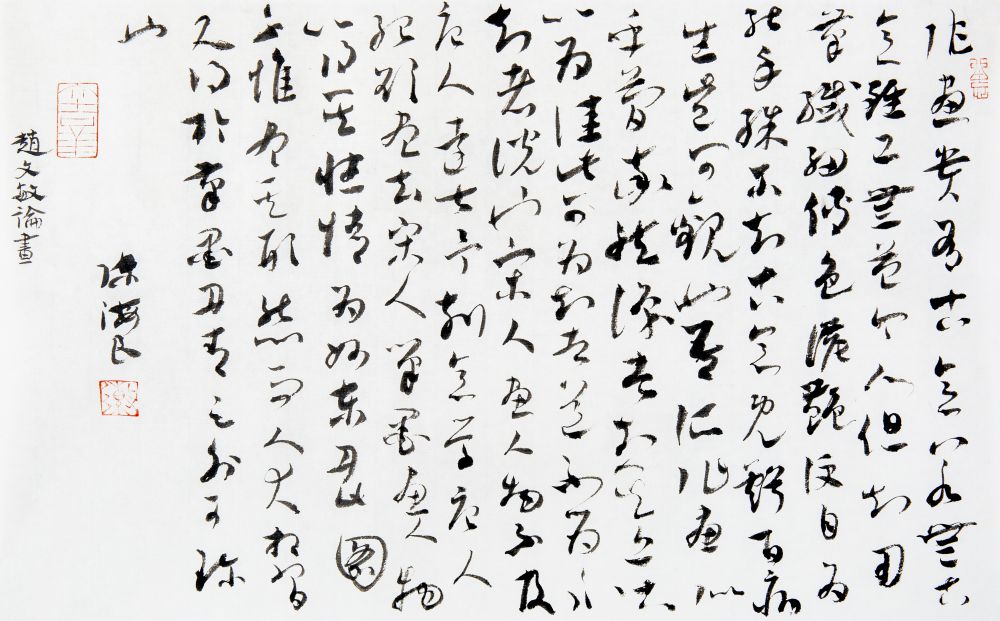 作畫貴有古意若無古
意雖工無益今人但知用
筆纖細傅色濃艷便自為
能手殊不知古意既虧百病
生豈可觀也吾所作畫似
乎簡率然識者知其近古
以為佳此可為知者道不為不
知者說也宋人畫人物不及
唐人遠甚予刻意學唐人
殆欲盡去宋人筆墨畫人物
以得其性情為妙東丹此圖
不惟盡其形態而人犬相習
又得於筆墨丹青之外可珍
也
趙文敏論畫
陳海良